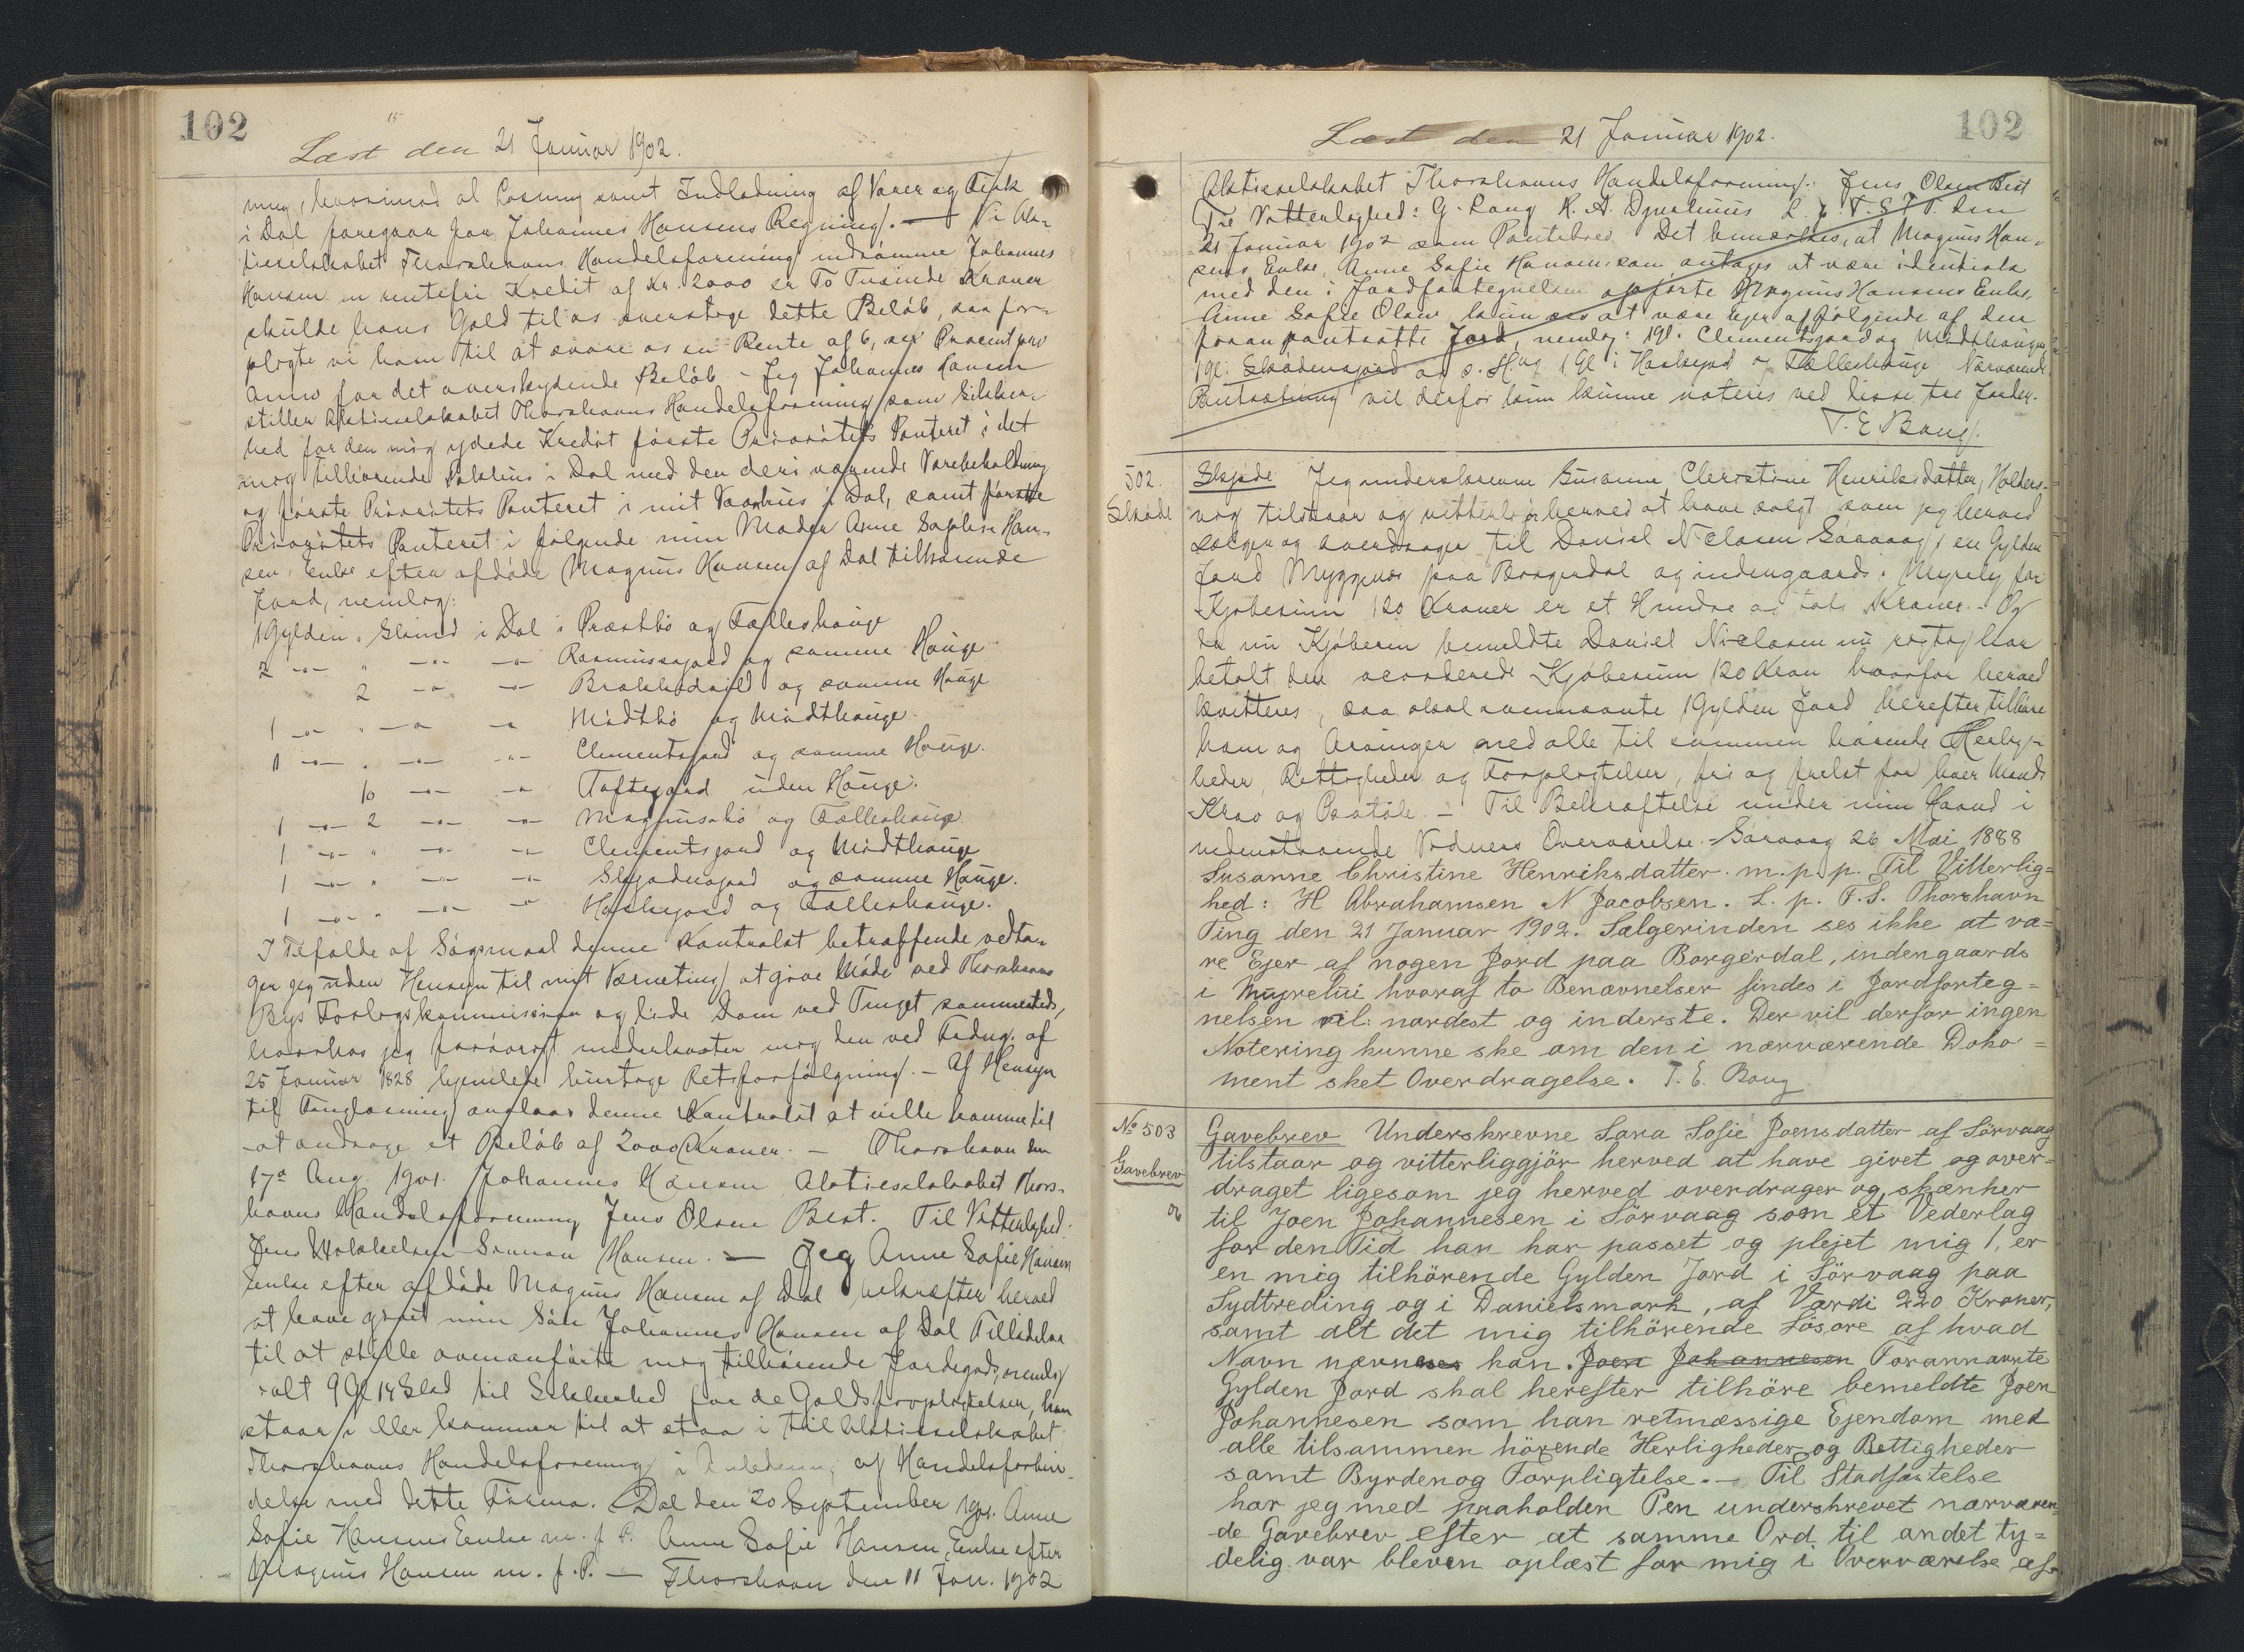 102
Læst den 21 Januar 1902.
ning, hvorimod al Losning samt Indladning af Varer og Fisk
i Dal foregaar for Johannes Hansens Regning. — Vi Ak-
tieselskabet Thorshavns Handelsforening indrømme Johannes
Hansen en rentefri Kredit af Kr. 2000 er To Tusinde Kroner
skulde hans Gæld til os overstige dette Beløb, saa for-
pligte vi ham til at svare os en Rente af 6, sex Procent pro
anno for det overskydende Beløb. – Jeg Johannes Hansen
stiller Aktieselskabet Thorshavns Handelsforening som Sikker-
hed for den mig ydede Kredit første Prioritets Panteret i det
mig tilhørende Pakhus i Dal med den deri værende Varebeholdning
og første Prioritets Panteret i mit Vaanhus i Dal, samt første
Prioritets Panteret i følgende min Moder Anne Sophie Han-
sen, Enke efter afdøde Magnus Hansen af Dal tilhørende
Jord, nemlig:
1 Gylden " Skind i Dal i Præstbø og Fælleshauge
2 —"— " —"— —"— Rasmussagard og samme Hauge
2 —"— —"— og samme Hauge
1 —"— " —"— —"— Midtbø og Midthauge.
1 —"— " —"— —"— Clementsgard og samme Hauge.
10 —"— —"— Toftegard uden Hauge.
1 —"— 2 —"— —"— Magnusabø og Fælleshauge
1 —"— " —"— —"— Clementsgard og Midthauge
1 —"— " —"— —"— Skjadensgard og samme Hauge.
1 —"— " —"— —"— Haskegard og Fælleshauge.
I Tilfælde af Søgsmaal denne Kontrakt betræffende vedta-
ger jeg uden Hensyn til mit Værneting at give Møde ved Thorshavns
Bys Forligskommission og lide Dom ved Tinget sammesteds,
hvorhos jeg forøvrigt underkaster mig den ved Frdng. af
25 Januar 1828 hjemlede hurtige Retsforfølgning. – Af Hensyn
til Tinglæsning anslaas denne Kontrakt at ville komme til
at andrage et Beløb af 2000 Kroner. — Thorshavn den
17de Aug. 1901. Johannes Hansen Aktieselskabet Thors-
havns Handelsforening Jens Olsen Best. Til Vitterlighed:
Jens Simon Hansen. — Jeg Anne Sofie Hansen
Enke efter afdøde Magnus Hansen af Dal bekræfter herved
at have givet min Søn Johannes Hansen af Dal Tilladelse
til at stille ovenanførte mig tilhørende Jordegods, nemlig
ialt 9 Gl 14 Skd til Sikkerhed for de Gældsforpligtelser, han
staar i eller kommer til at staa i til Aktieselskabet
Thorshavns Handelsforening i Anledning af Handelsforbin-
delse med dette Firma. Dal den 20 September 1901. Anne
Sofie Hansens Enke m. f. P. Anne Sofie Hansen, Enke efter
Magnus Hansen m. f. P. — Thorshavn den 11 Jan. 1902
102
Læst den 21 Januar 1902.
Aktieselskabet Thorshavns Handelsforening: Jens Olsen Best
Til Vitterlighed: G. Lang K. A. Djurhuus L. p. T. S T P. den
21 Januar 1902 som Pantebrev Det bemærkes, at Magnus Han-
sens Enke, Anne Sofie Hansen, som antages at være identisk
med den i Jordfortegnelsen opførte Magnus Hansens Enke,
Anne Sofie Olsen, kun ses at være Ejer af følgende af den
foran pantsatte Jord, nemlig: 1 Gl. i Clementsgard og Midthaugen
1 gl. i Skådensgard og s. Hug 1 Gl i Haskegard og Fælleshauge Nærværende
Pantsætning vil derfor kun kunne noteres ved disse tre Jorder.
T. E. Bang.
502.
Skøde
Skjøde Jeg underskrevne Susanne Christine Henriksdatter, Holders-
vig tilstaar og vitterliggjør herved at have solgt som jeg herved
sælger og overdrager til Daniel Niclasen Sørvaag 1 en Gylden
Jord Myggenæs paa Borgerdal og indengaards i Myrely for
Kjøbesum 120 Kroner er et Hundre og tyve Kroner. – Og
da nu Kjøberen bemeldte Daniel Niclasen nu rigtig har
betalt den accorderede Kjøbesum 120 Kron hvorfor herved
kvitteres, saa skal ommrørte 1 Gylden Jord herefter tilhøre
ham og Arvinger med alle til sammen hørende Herlig-
heder, Rettigheder og Forpligtelser, fri og frelst for hver Mands
Krav og Paatale. – Til Bekræftelse under min Haand i
nedenstaaende Vidners Overværelse. – Sørvaag 26 Mai 1888
Susanne Christine Henriksdatter. m. p. p. Til Vitterlig=
hed: H Abrahamsen N Jacobsen. L. p. T. S. Thorshavn
Ting den 21 Januar 1902. Sælgerinden ses ikke at væ=
re Ejer af nogen Jord paa Borgerdal, indengaards
i Muyrelui hvoraf to Benævnelser findes i Jordforteg=
nelsen vil: nærdest og inderste. Der vil derfor ingen
Notering kunne ske om den i nærværende Doko=
ment sket Overdragelse. T. E. Bang
No 503
Gavebrev
Gavebrev Underskrevne Sara Sofie Joensdatter af Sörvaag
tilstaar og vitterliggjör herved at have givet og over=
draget ligesom jeg herved overdrager og skænker
til Joen Johannesen i Sörvaag som et Vederlag
for den Tid han har passet og plejet mig 1, er
en mig tilhörende Gylden Jord i Sörvaag paa
Sydtreding og i Danielsmark, af Værdi 220 Kroner,
samt alt det mig tilhörende Lösöre af hvad
Navn nævnes han. Joen Johannesen Forannævnte
Gylden Jord skal herefter tilhöre bemeldte Joen
Johannesen som han retmæssige Ejendom med
alle tilsammen hörende Herligheder og Rettigheder
samt Byrden og Forpligtelse. — Til Stadfæstelse
har jeg med paaholden Pen underskrevet nærværen=
de Gavebrev efter at samme Ord til andet ty=
delig var bleven oplæst for mig i Overværelse af